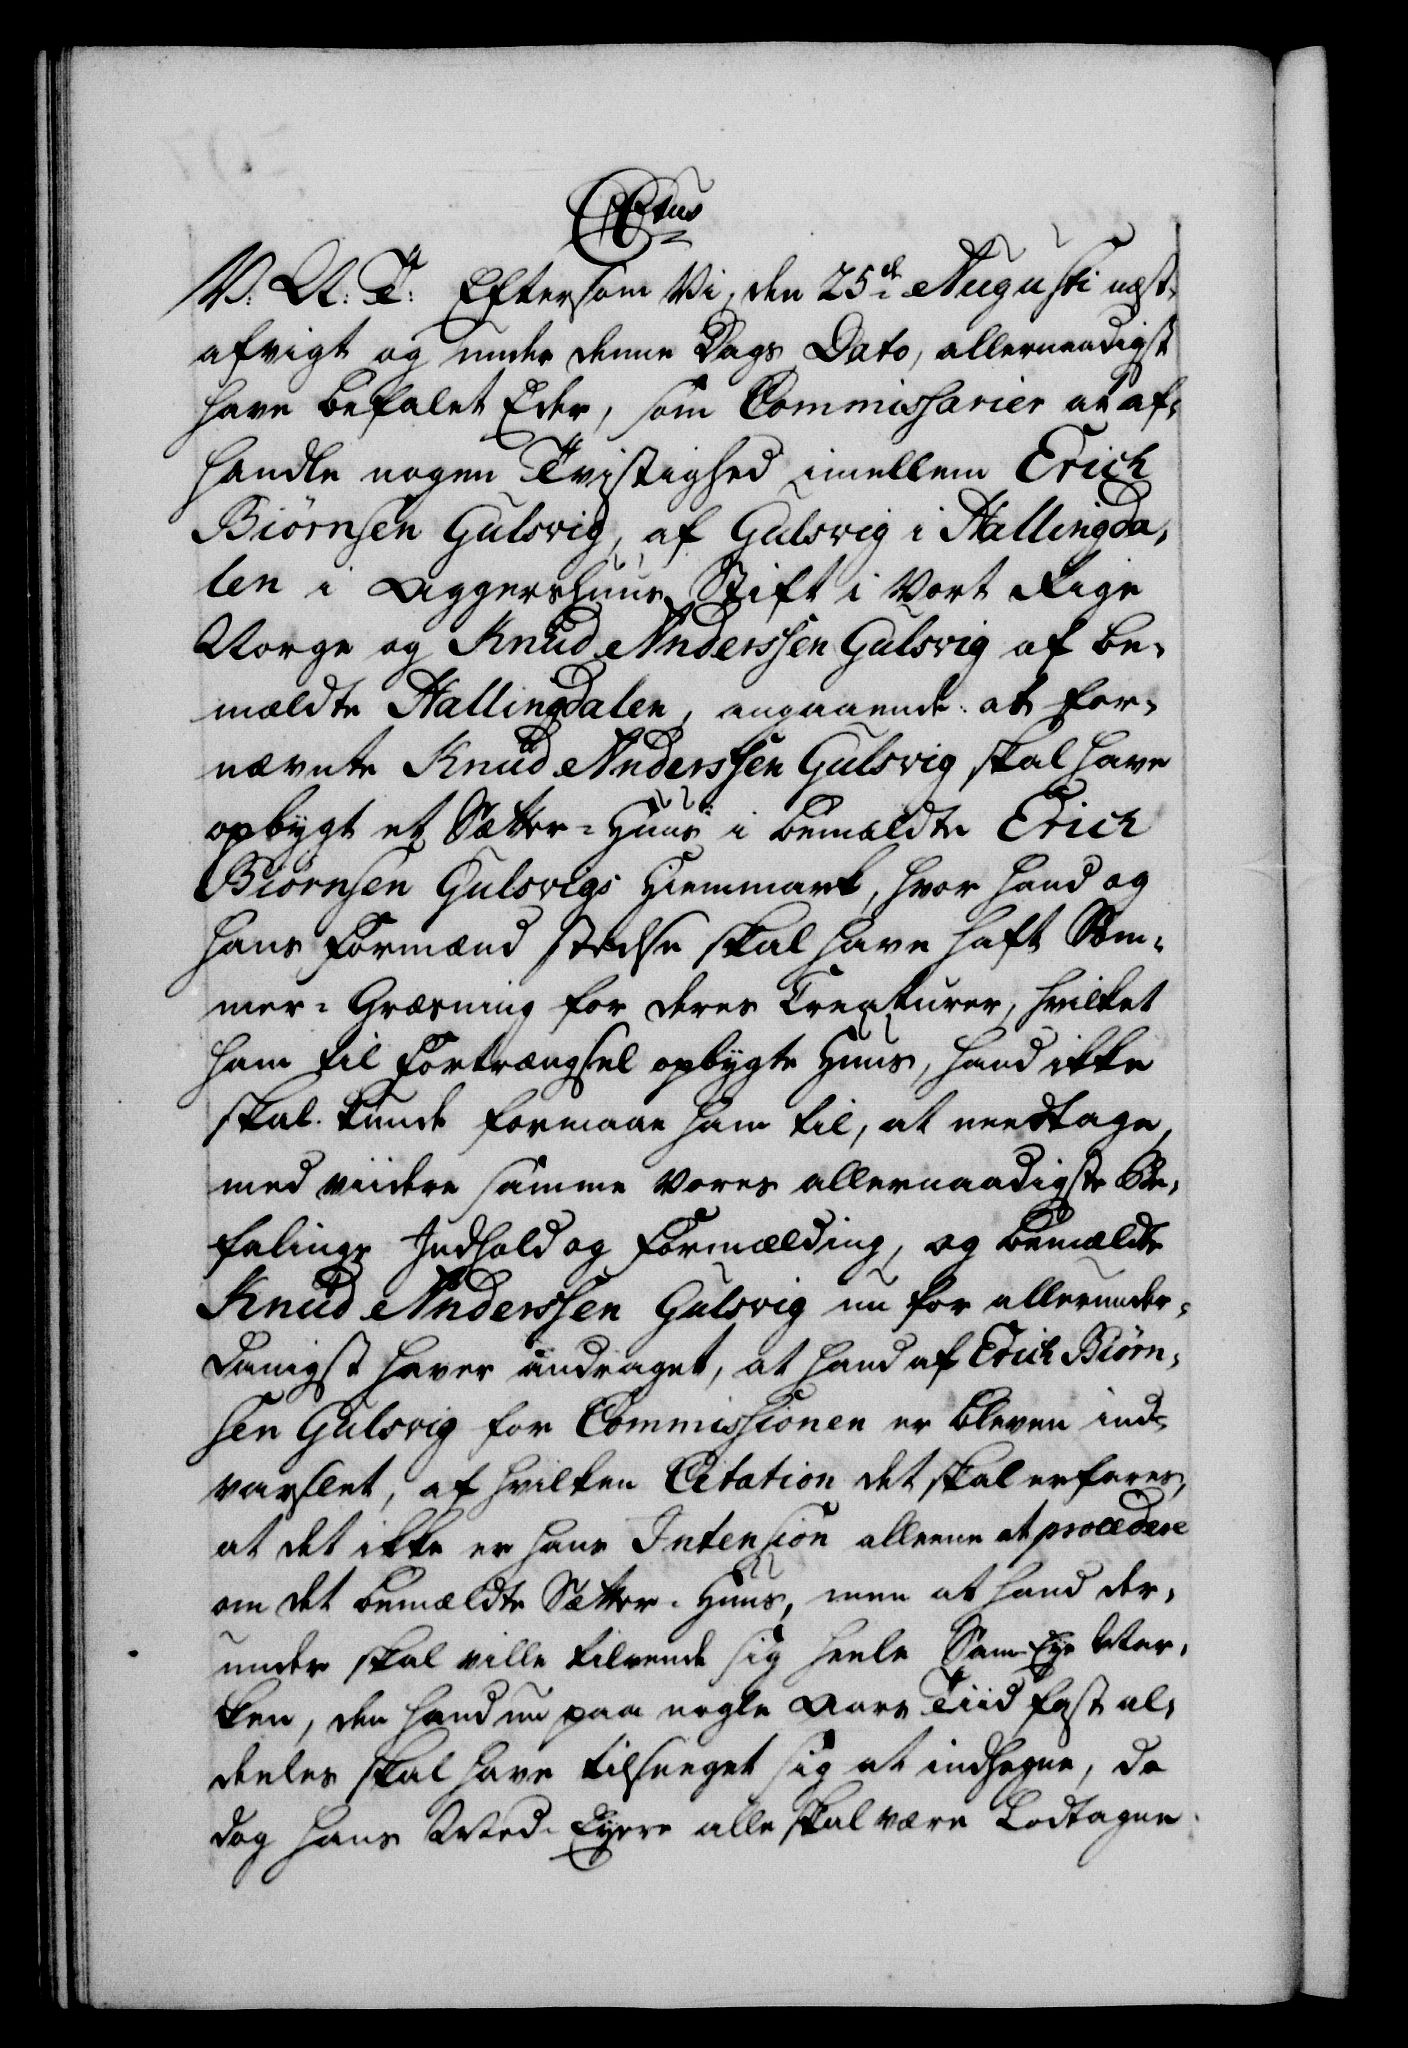 CStus
V: G: T: Eftersom Vi, den 25de Augusti næst-
afvigt og under denne Dags Dato, allernaadigst
have befalet Eder, som Commissarier at af-
handle nogen Tvistighed imellem Erich
Biørnsen Gulsvig, af Gulsvig i Hallingda-
len i Aggershuus Stift i Vort Rige
Norge og Knud Anderssen Gulsvig af be-
mældte Hallingdalen, angaaende at for-
nævnte Knud Anderssen Gulsvig skal have
opbygt et Sætter-Huus i bemældte Erich
Biørnsen Gulsvigs Hiemmark, hvor hand og
hans Formænd stedse skal have haft Som-
mer-Græsning for deres Creaturer, hvilket
ham til Fortrængsel opbygte Huus, hand ikke
skal kunde formaae ham til, at needtage,
med viidere samme Vores allernaadigste Be-
falings Indhold og Formælding, og bemældte
Knud Anderssen Gulsvig nu for allerunder-
danigst haver andraget, at hand af Erich Biørn-
sen Gulsvig for Commissionen er bleven ind-
varslet, af hvilken Citation det skal erfares,
at det ikke er hans Intension alleene at procedere
om det bemældte Sætter-Huus, men at hand der-
under skal ville tilvende sig heele Sam-Eye Mar-
ken, den hand nu paa nogle Aars Tiid fast al-
deeles skal have tilsneget sig at indhegne, da
dog hans Med-Eyere alle skal være Lodtagne